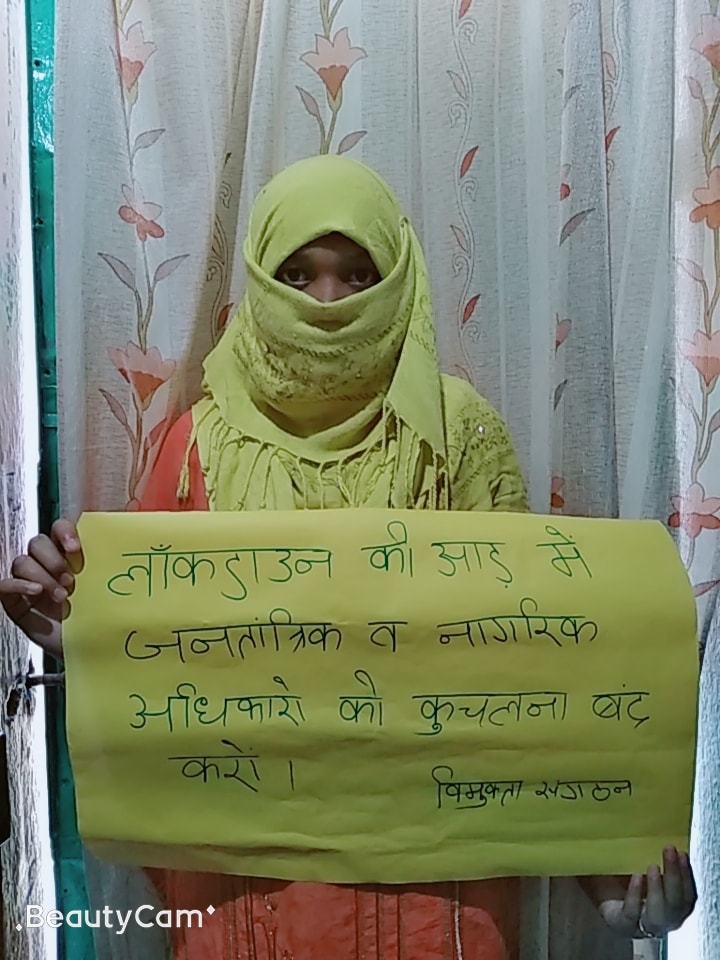 लाँकडाउन की आड़ में
जनतांत्रिक व नागरिक
अधिकारो को कुचलना बंद
करों ।
विमुक्ता संगठन
.BeautyCam